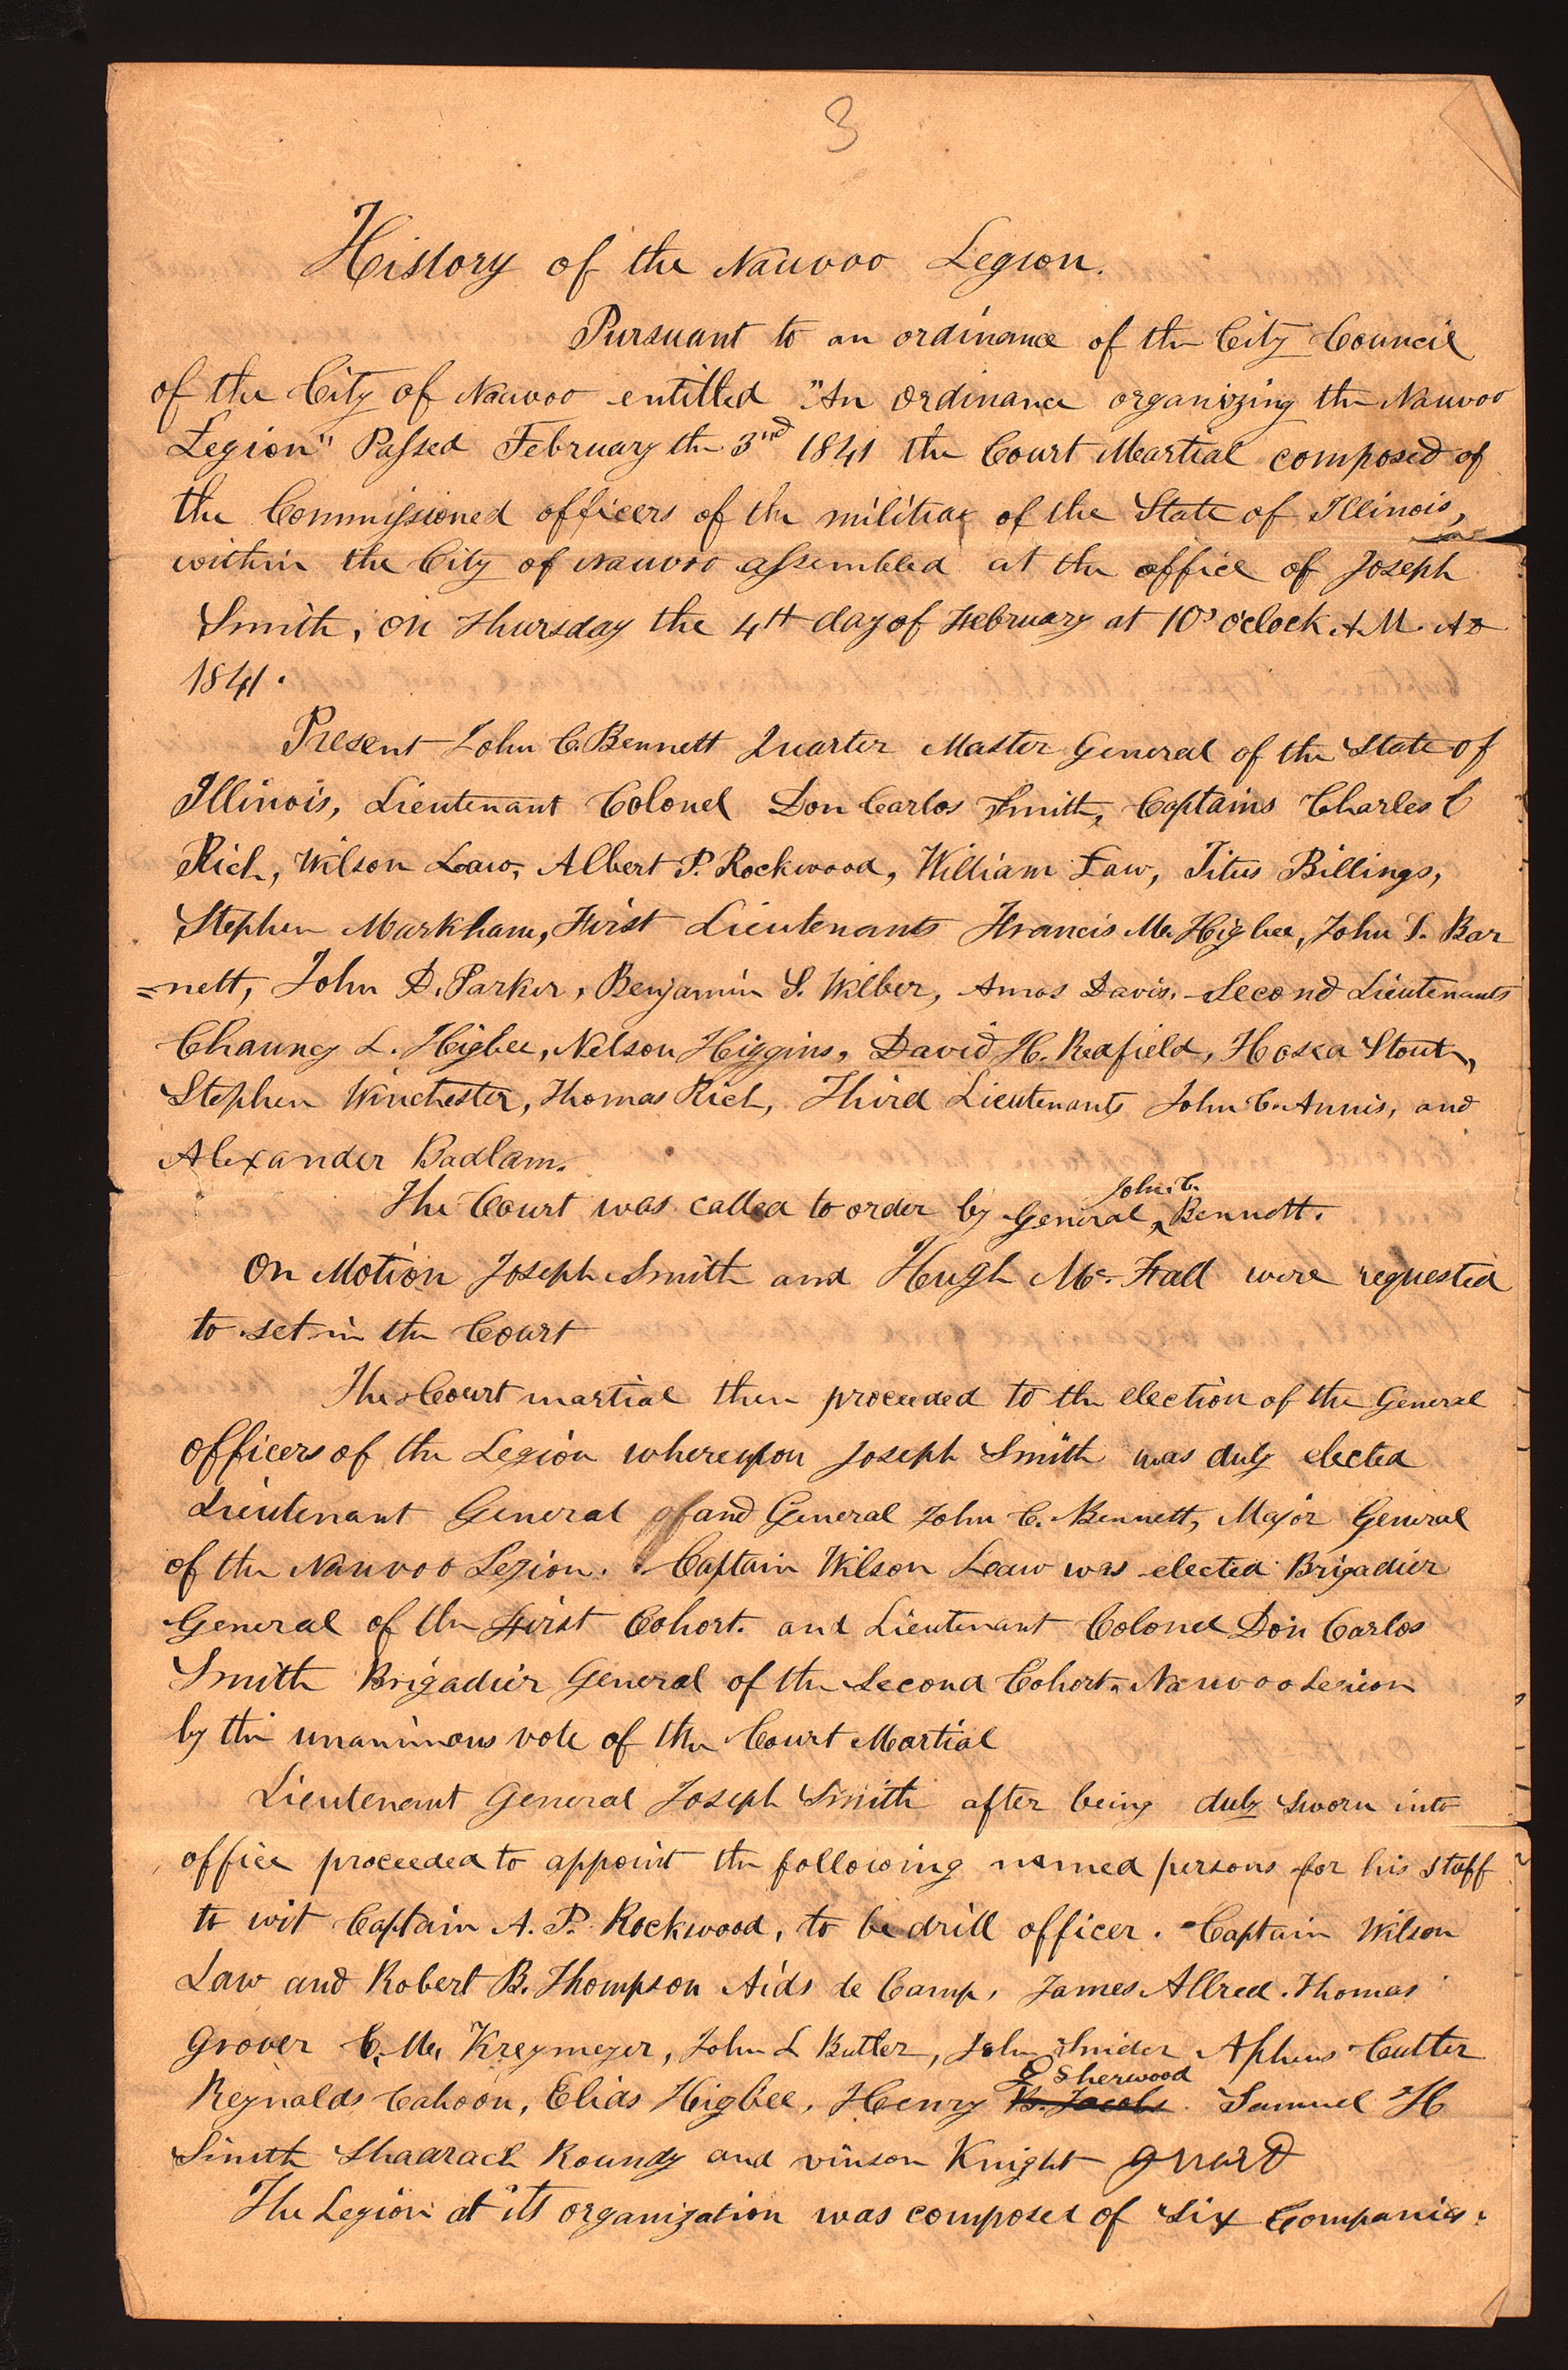 3
History of the Nauvoo Legion.
Pursuant to an ordinance of the City Council
of the City of Nauvoo entitled "An ordinance organizing the Nauvoo
Legion" Passed February the 3nd 1841 the Court Martial composed of
the Commissioned officers of the militia of the State of Illinois,
within the City of Nauvoo assembled at the office of Joseph
Smith, on Thursday the 4th day of February at 10 o'clock A.M. AD
1841.
Present John C. Bennett Quarter Master General of the State of
Illinois, Lieutenant Colonel Don Carlos Smith, Captains Charles C
Rich, Wilson Law, Albert P. Rockwood, William Law, Titus Billings,
Stephen Markham, First Lieutenants Francis M. Higbee, John T. Bar
=nett, John D. Parker, Benjamin S. Wilber, Amos Davis. Second Lieutenants
Chauncy L. Higbee, Nelson Higgins, David H. Redfield, Hosea Stout,
Stephen Winchester, Thomas Rich, Third Lieutenants John C. Annis, and
Alexander Badlam.
The Court was called to order by General John C. Bennett.
On Motion Joseph Smith and Hugh Mc. Fall were requested
to set in the Court
The Court martial then proceeded to the election of the General
officers of the Legion whereupon Joseph Smith was duly elected
Lieutenant General and General John C. Bennett, Major General
of the Nauvoo Legion. Captain Wilson Law was elected Brigadier
General of the First Cohort. and Lieutenant Colonel Don Carlos
Smith Brigadier General of the Second Cohort, Nauvoo Legion
by the unanimous vote of the Court Martial
Lieutenant General Joseph Smith after being duly sworn into
office proceeded to appoint the following named persons for his staff
to wit Captain A. P. Rockwood, to be drill officer. Captain Wilson
Law and Robert B. Thompson Aids de Camp, James Allred. Thomas
Grover C. M. Kreymeyer, John L Butler, John Snider Alpheus Cutter
Reynalds Cahoon, Elias Higbee, Henry B. Jacobs G Sherwood Samuel H
Smith Shadrach Roundy and vinson Knight guard
The Legion at its organization was composed of six Companies.